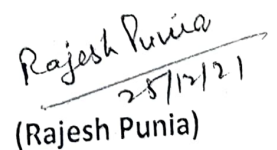 Rajesh Punia
25/12/21
(Rajesh Punia)